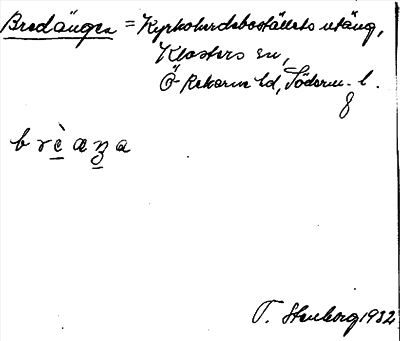 Bredängen = Kyrkoherdeboställets utäng,
Klosters sn,
Ö. Rekarne hd, Söderm. l.
brèaṉga
T. Stenborg 1932